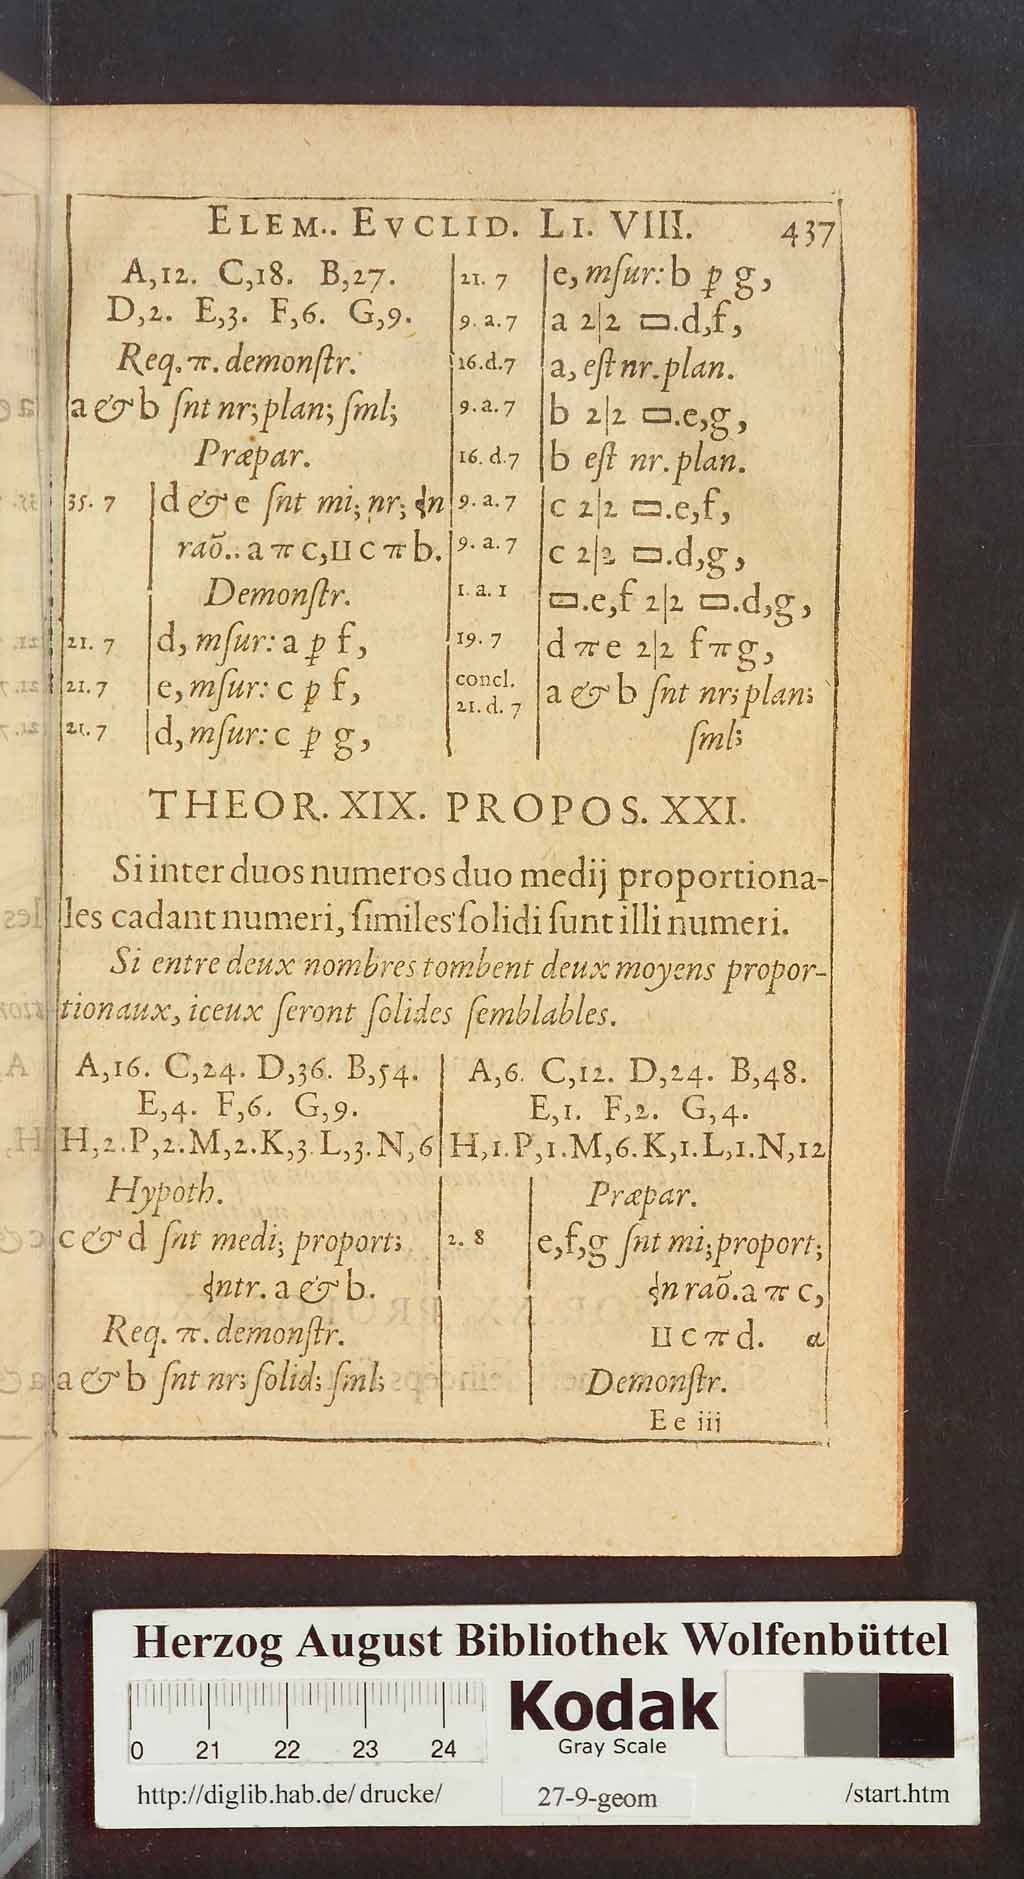 ELEM.. EVCLID. LI. VIII. 437
A,12. C,18. B,27.
D,2. E,3. F,6. G,9.
Req. π. demonſtr.
a & b ſnt nr; plan; ſml;
Præpar.
35. 7 d & e ſnt mi; nr; n
raō.. a π c, II c π b.
Demonſtr.
21. 7 d, mſur: a ꝑ f,
21. 7 e, mſur: c ꝑ f,
21. 7 d, mſur: c ꝑ g,
21. 7 e, mſur: b ꝑ g,
9. a. 7 a 2|2 ▭.d,f,
16.d.7 a, eſt nr. plan.
9. a. 7 b 2|2 ▭.e,g,
16. d.7 b eſt nr. plan.
9. a. 7 c 2|2 ▭.e,f,
9. a. 7 c 2|2 ▭.d,g,
1. a. 1 ▭.e,f 2|2 ▭.d,g,
19. 7 d π e 2|2 f π g,
concl.
21. d. 7 a & b ſnt nr; plan;
ſml;
THEOR. XIX. PROPOS. XXI.
Si inter duos numeros duo medij proportiona-
les cadant numeri, ſimiles ſolidi ſunt illi numeri.
Si entre deux nombres tombent deux moyens propor-
tionaux, iceux ſeront ſolides ſemblables.
A,16. C,24. D,36. B,54.
E,4. F,6. G,9.
H,2.P,2.M,2.K,3.L,3.N,6
A,6. C,12. D,24. B,48.
E,1. F,2. G,4.
H,1.P,1.M,6.K,1.L,1.N,12
Hypoth.
c & d ſnt medi; proport;
ntr. a & b.
Req. π. demonſtr.
a & b ſnt nr; ſolid; ſml;
Præpar.
2. 8 e,f,g ſnt mi; proport;
n raō. a π c,
II c π d. a
Demonſtr.
E e iij
Herzog August Bibliothek Wolfenbüttel
0 21 22 23 24
Kodak
Gray Scale
http://diglib.hab.de/ drucke/ 27-9-geom /start.htm